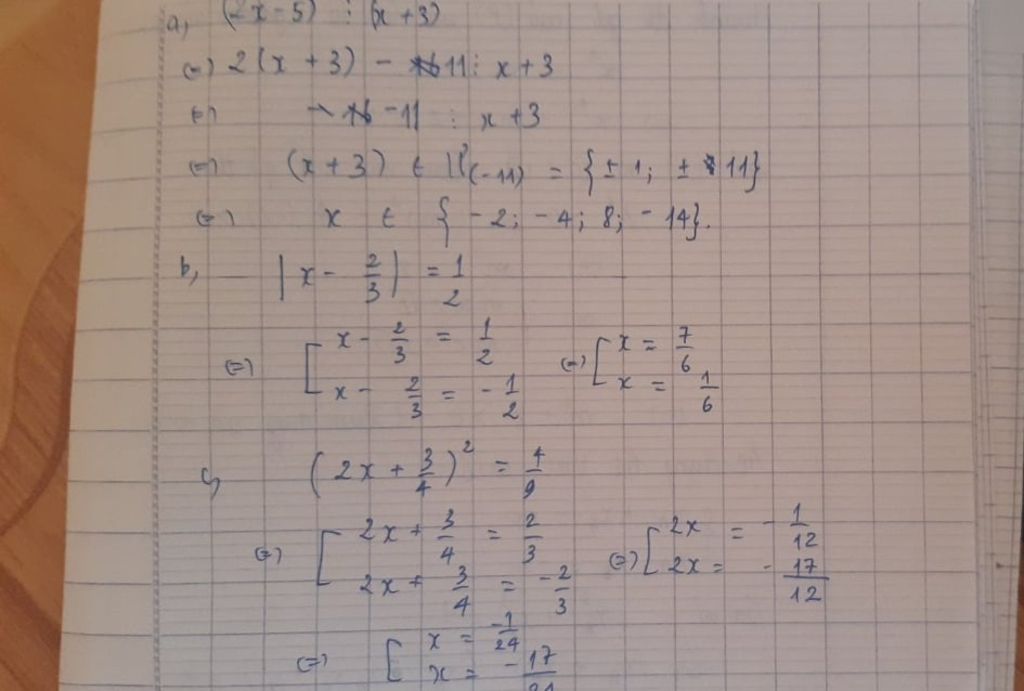 a, (2x - 5) ⋮ (x + 3)
(=) 2(x + 3) - 11 ⋮ x + 3
(=) -11 ⋮ x + 3
(=) (x + 3) ∈ Ư(-11) = {± 1; ± 11}
(=) x ∈ {-2; -4; 8; -14}.
b, |x - 2/3| = 1/2
(=) [ x - 2/3 = 1/2 (=) [ x = 7/6
x - 2/3 = -1/2 x = 1/6
c, (2x + 3/4)² = 4/9
(=) [ 2x + 3/4 = 2/3 (=) [ 2x = -1/12
2x + 3/4 = -2/3 2x = -17/12
(=) [ x = -1/24
x = -17/24